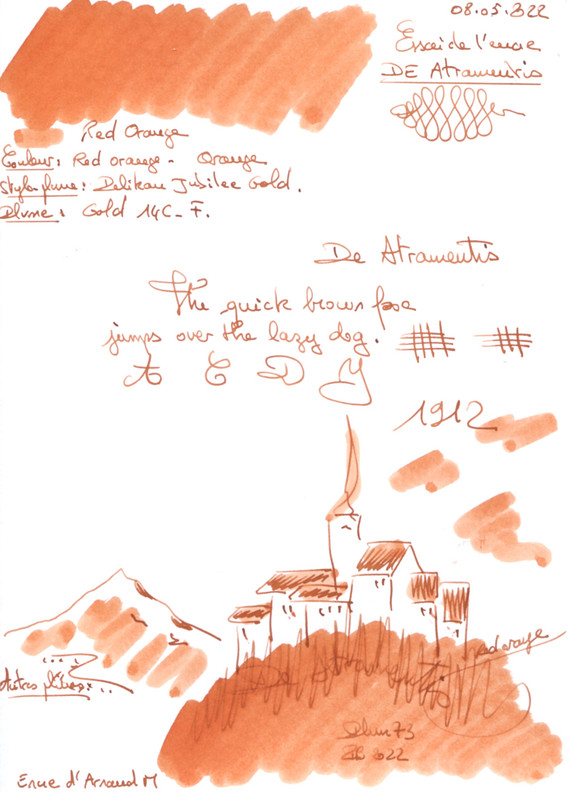 08.05.2022
Essai de l'encre
DE Atramentis
Red Orange
Couleur: Red orange - Orange
Stylo-plume: Pelikan Jubilee Gold.
Plume: Gold 14C - F.
De Atramentis
The quick brown foxe
jumps over the lazy dog.
A C D Y
1912
red orange
De Atramentis
Autres plumes:
Plum73
2022
Encre d'Arnaud M